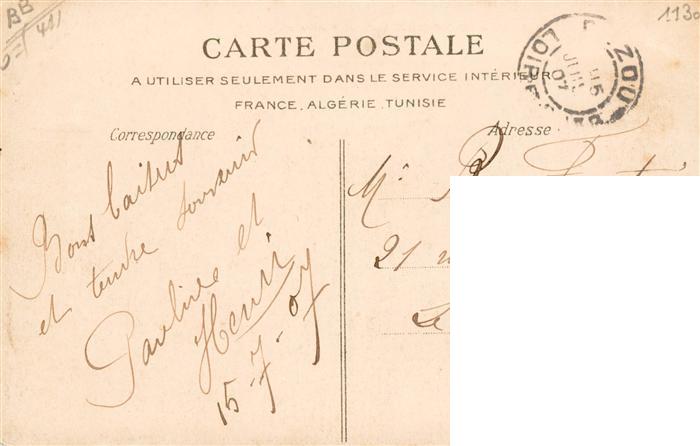 BB
1130
CARTE POSTALE
A UTILISER SEULEMENT DANS LE SERVICE INTÉRIEUR
FRANCE, ALGÉRIE, TUNISIE
Correspondance
Adresse
Bons baisers
et tendre souvenir
Pauline et
Henri
15-7-07
21
Le